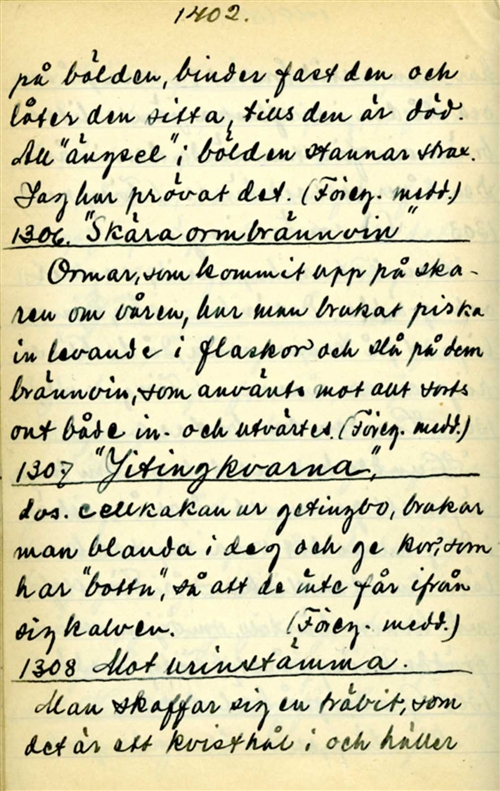 1402.
på bölden, binder fast den och
låter den sitta, tills den är död.
All "ängsel" i bölden stannar strax.
Jag har prövat det. (Föreg. medd.)
1306. "Skära ormbrännvin"
Ormar, som kommit upp på ska-
ren om våren, har man brukat piska
in levande i flaskor och slå på dem
brännvin, som använts mot allt sorts
ont både in- och utvärtes. (Föreg. medd.)
1307 "Jitingkvarna",
dvs. cellkakan ur getingbo, brukar
man blanda i deg och ge kor, som
har "bottn", så att de inte får ifrån
sig kalven. (Föreg. medd.)
1308 Mot urinstämma.
Man skaffar sig en träbit, som
det är ett kvisthål i och håller